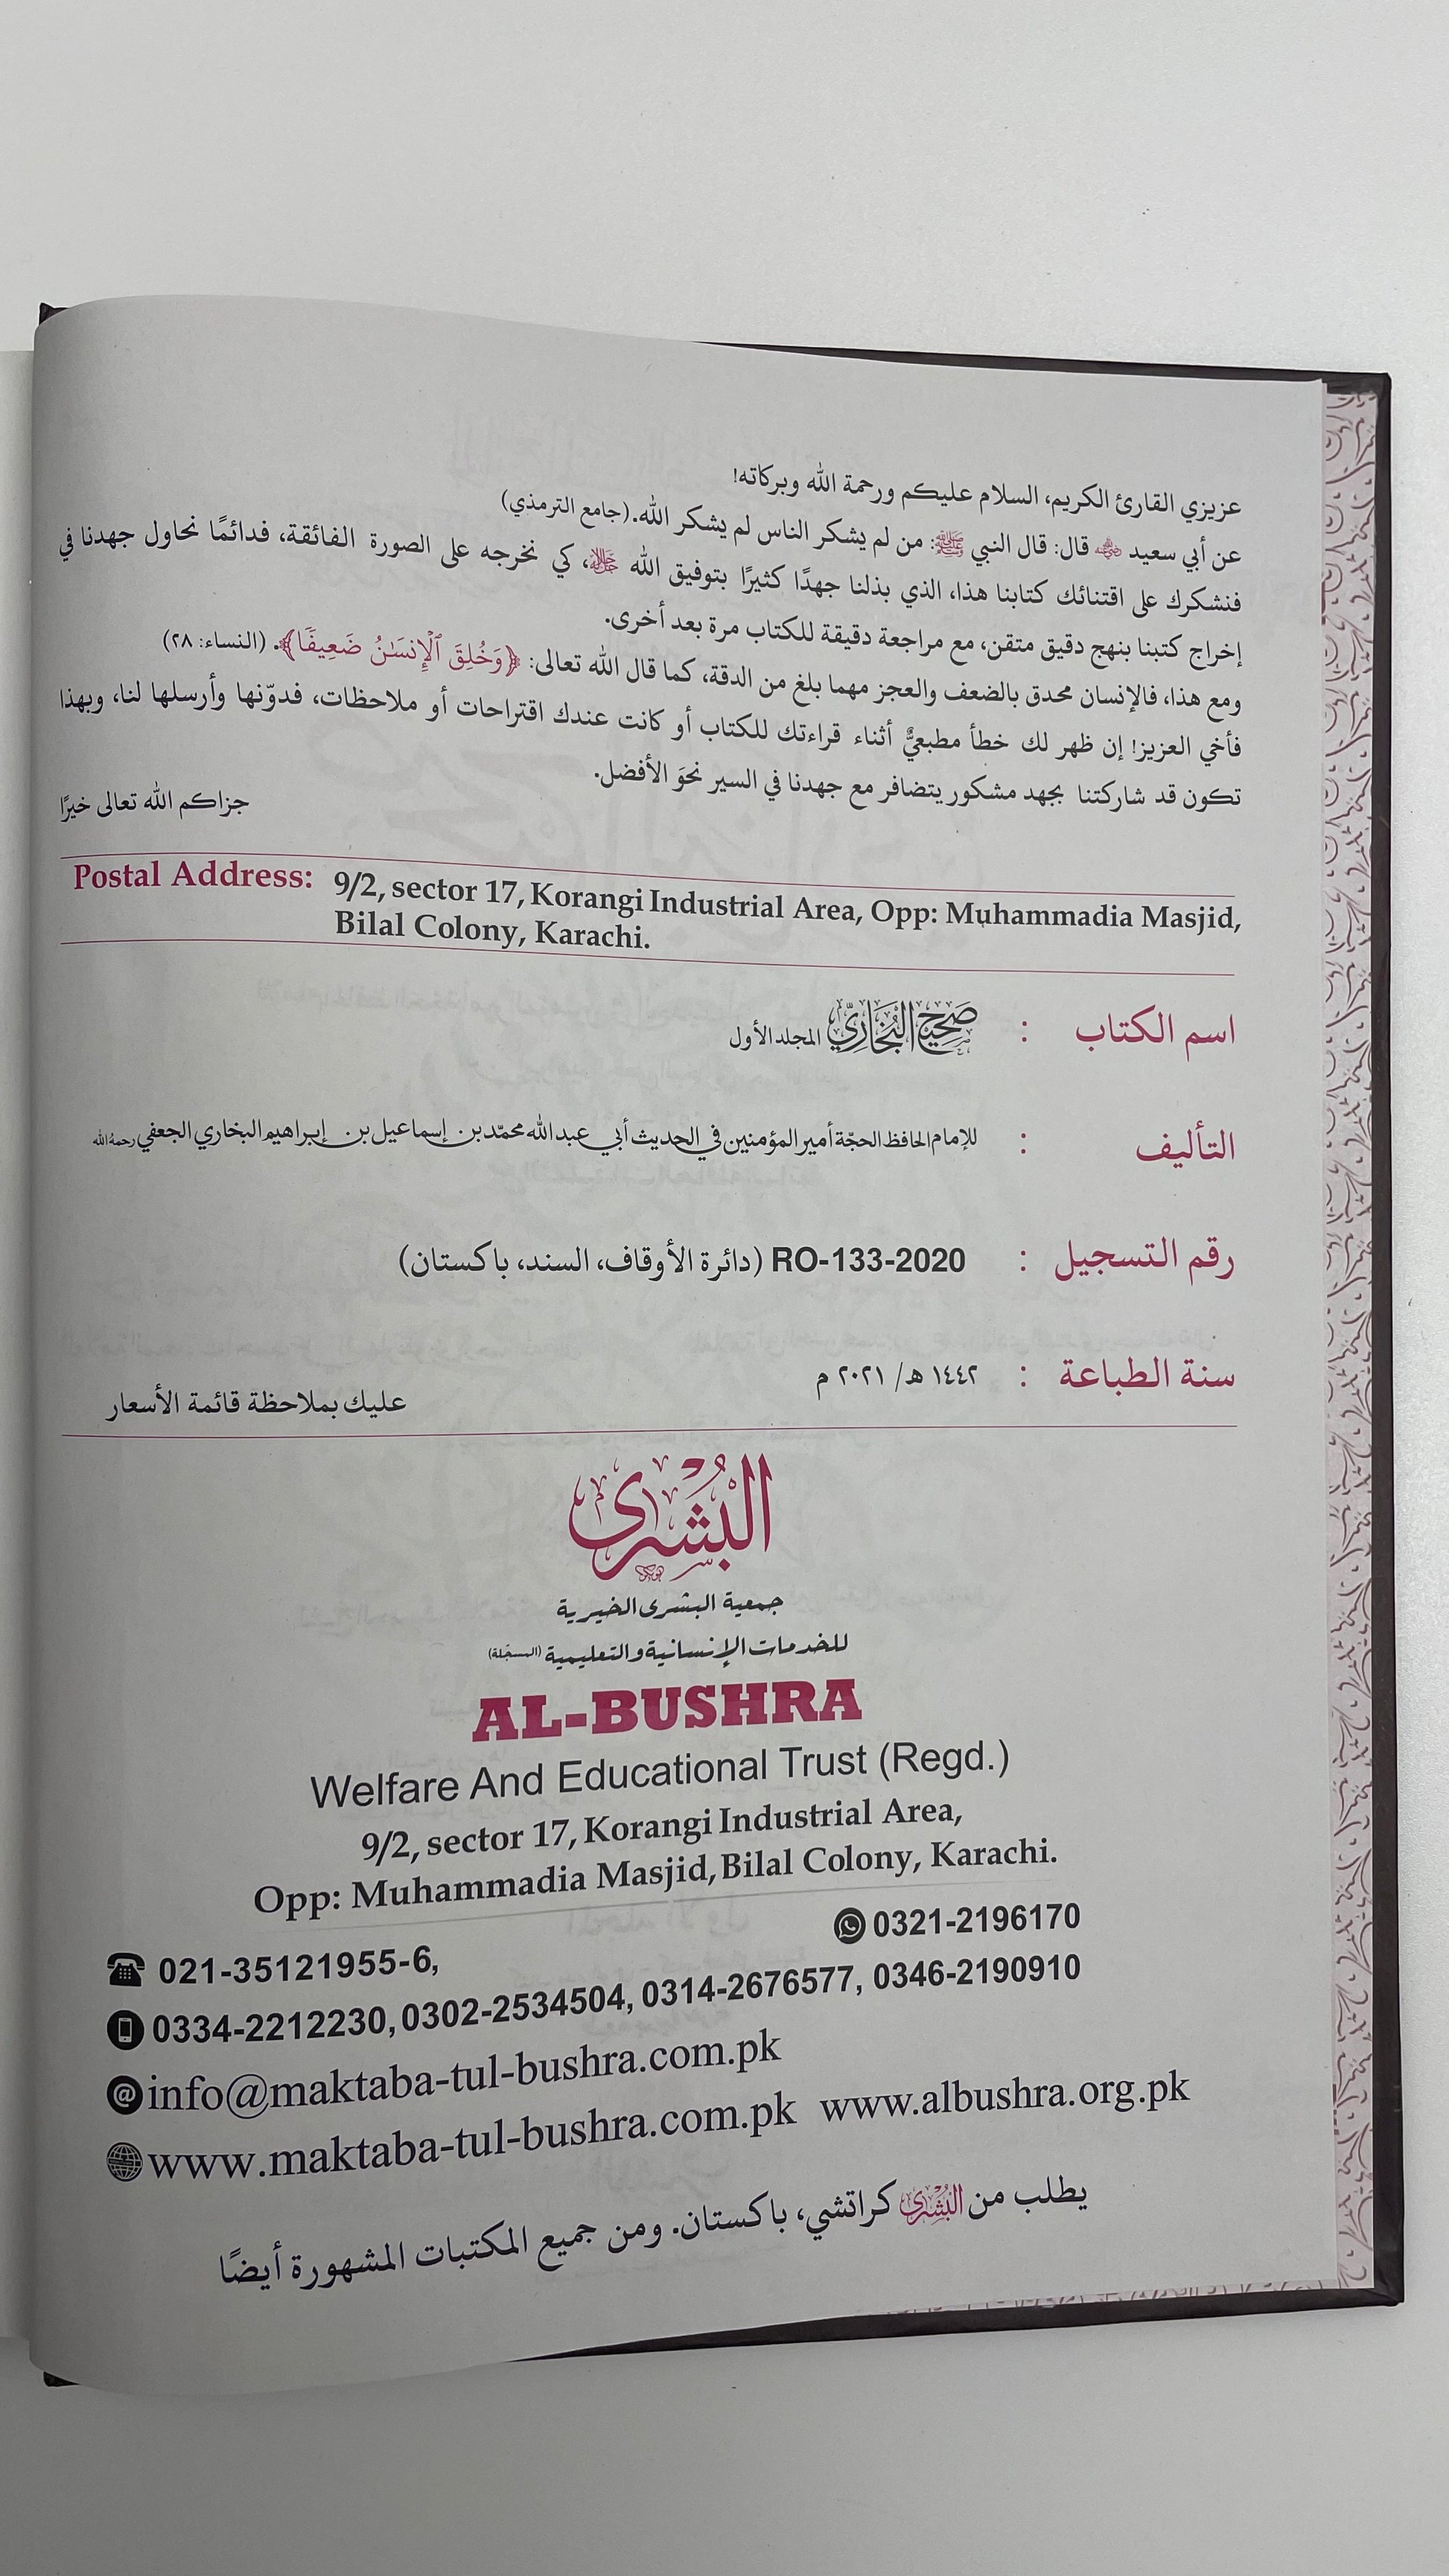 عزيزي القارئ الكريم، السلام عليكم ورحمة الله وبركاته!
عن أبي سعيد ﵁ قال: قال النبي ﷺ: من لم يشكر الناس لم يشكر الله. (جامع الترمذي)
فنشكرك على اقتنائك كتابنا هذا، الذي بذلنا جهدًا كثيرًا بتوفيق الله ﷻ، كي نخرجه على الصورة الفائقة، فدائمًا نحاول جهدنا في
إخراج كتبنا بنهج دقيق متقن، مع مراجعة دقيقة للكتاب مرة بعد أخرى.
ومع هذا، فالإنسان محدق بالضعف والعجز مهما بلغ من الدقة، كما قال الله تعالى: ﴿وَخُلِقَ ٱلْإِنسَٰنُ ضَعِيفًا﴾. (النساء: ٢٨)
فأخي العزيز! إن ظهر لك خطأ مطبعيٌّ أثناء قراءتك للكتاب أو كانت عندك اقتراحات أو ملاحظات، فدوّنها وأرسلها لنا، وبهذا
تكون قد شاركتنا بجهد مشكور يتضافر مع جهدنا في السير نحوَ الأفضل.
جزاكم الله تعالى خيرًا
Postal Address: 9/2, sector 17, Korangi Industrial Area, Opp: Muhammadia Masjid,
Bilal Colony, Karachi.
اسم الكتاب : صَحِيحُ البُخَارِيّ المجلد الأول
التأليف : للإمام الحافظ الحجّة أمير المؤمنين في الحديث أبي عبد الله محمّد بن إسماعيل بن إبراهيم البخاري الجعفي رحمه الله
رقم التسجيل : RO-133-2020 (دائرة الأوقاف، السند، باكستان)
سنة الطباعة : ١٤٤٢ هـ/ ٢٠٢١ م
عليك بملاحظة قائمة الأسعار
البُشْرى
جمعية البشرى الخيرية
للخدمات الإنسانية والتعليمية (المسجّلة)
AL-BUSHRA
Welfare And Educational Trust (Regd.)
9/2, sector 17, Korangi Industrial Area,
Opp: Muhammadia Masjid, Bilal Colony, Karachi.
021-35121955-6, 0321-2196170
0334-2212230, 0302-2534504, 0314-2676577, 0346-2190910
info@maktaba-tul-bushra.com.pk
www.maktaba-tul-bushra.com.pk www.albushra.org.pk
يطلب من البُشْرى كراتشي، باكستان. ومن جميع المكتبات المشهورة أيضًا